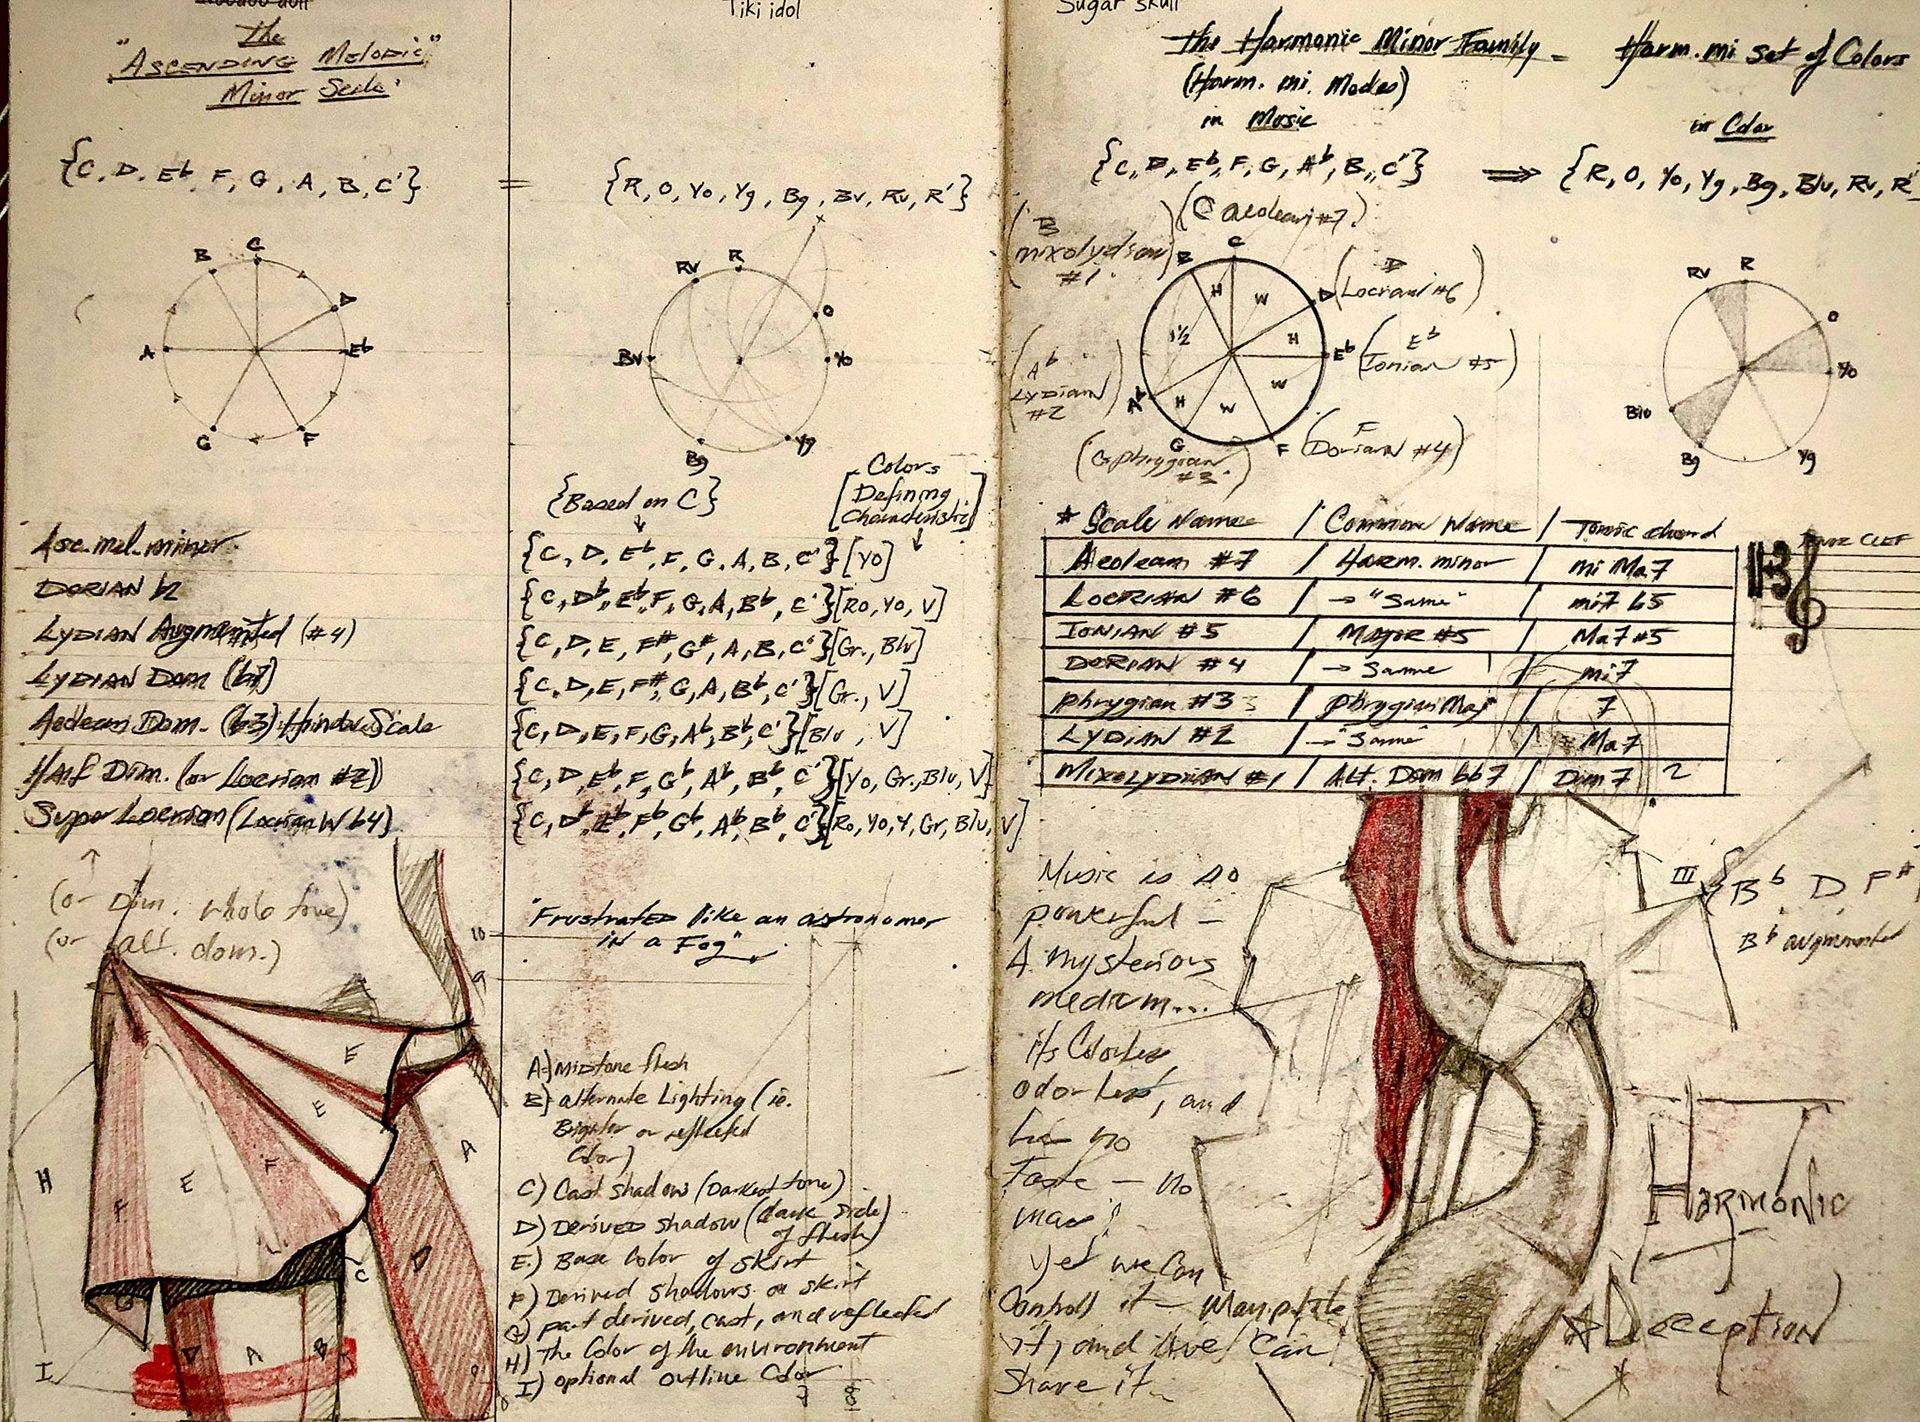 Voodoo doll
The
"Ascending Melodic"
Minor Scale
{C, D, E♭, F, G, A, B, C'}
=
B
C
D
A
E♭
G
F
Asc. mel. minor
Dorian b2
Lydian Augmented (#4)
Lydian Dom (b7)
Aeolean Dom. (b3) Hindu Scale
Half Dim. (or Locrian #2)
Super Locrian (Locrian W b4)
(or Dim. whole tone)
(or alt. dom.)
E
E
A
H
F
E
F
D
C
G
I
D
A
B
Tiki idol
{R, O, Yo, Yg, Bg, Bv, Rv, R'}
Rv
R
O
Bv
Yo
Bg
Yg
{Based on C}
[Colors
Defining
Characteristic]
{C, D, E♭, F, G, A, B, C'} [Yo]
{C, D♭, E♭, F, G, A, B♭, C'} [Ro, Yo, V]
{C, D, E, F#, G#, A, B, C'} [Gr., Blu]
{C, D, E, F#, G, A, B♭, C'} [Gr., V]
{C, D, E, F, G, A♭, B♭, C'} [Blu, V]
{C, D, E♭, F, G♭, A♭, B♭, C'} [Yo, Gr., Blu, V]
{C, D♭, E♭, F♭, G♭, A♭, B♭, C'} [Ro, Yo, Y, Gr, Blu, V]
"Frustrated like an astronomer
in a Fog"
10
9
A) Midtone flesh
B) alternate Lighting (ie.
Brighter or reflected
Color)
C) Cast shadow (Darkest tone)
D) Derived shadow (dark side
of flesh)
E.) Base Color of skirt
F) Derived shadows on skirt
G) part derived, cast, and reflected
H) The Color of the environment
I) optional outline Color
7
8
Sugar skull
The Harmonic Minor Family - Harm. mi set of Colors
(Harm. mi. Modes)
in Music
in Color
{C, D, E♭, F, G, A♭, B, C'} ⇒ {R, O, Yo, Yg, Bg, Blu, Rv, R'
(C aeolean #7)
(B
mixolydian
#1)
(D
Locrian #6)
(E♭
Ionian #5)
(F
Dorian #4)
(G phrygian
#3)
(A♭
Lydian
#2)
C
B
D
E♭
F
G
A♭
H
W
H
W
W
H
1½
Rv
R
O
Yo
Blu
Bg
Yg
* Scale Name / Common Name / Tonic chord
Aeolean #7 / Harm. minor / mi Ma7
Locrian #6 / → "Same" / mi7 b5
Ionian #5 / Major #5 / Ma7 #5
Dorian #4 / → Same / mi7
Phrygian #3 / Phrygian Maj / 7
Lydian #2 / → "Same" / Ma7
Mixolydian #1 / Alt. Dom bb7 / Dim7 2
CLEF
III { B♭ D F#
B♭ augmented
Music is so
powerful —
A mysterious
medium...
its Colorless
odorless, and
has no
Taste — no
mass;
yet we can
Controll it — Manipulate
it, and We Can
Share it
Harmonic
Deception